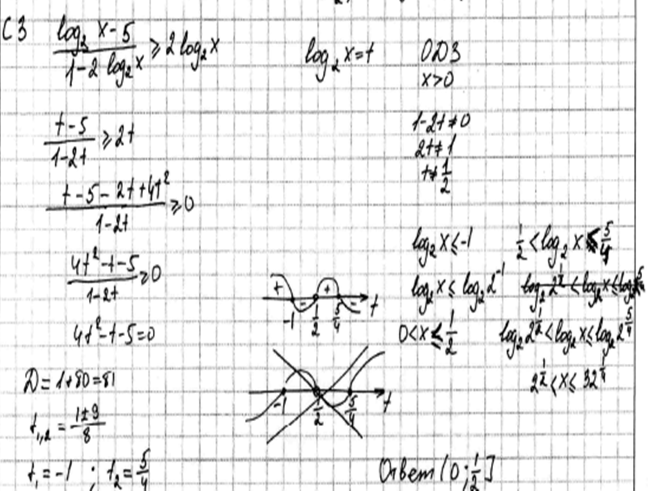 C3 (log₂ x - 5)/(1 - 2 log₂ x) ≥ 2 log₂ x
log₂ x = t
ОДЗ
x > 0
(t - 5)/(1 - 2t) ≥ 2t
1 - 2t ≠ 0
2t ≠ 1
t ≠ 1/2
(t - 5 - 2t + 4t²)/(1 - 2t) ≥ 0
(4t² - t - 5)/(1 - 2t) ≥ 0
4t² - t - 5 = 0
D = 1 + 80 = 81
t₁,₂ = (1 ± 9)/8
t₁ = -1 ; t₂ = 5/4
+ - + -
-1 1/2 5/4 t
-1 1/2 5/4 t
log₂ x ≤ -1
log₂ x ≤ log₂ 2⁻¹
0 < x ≤ 1/2
1/2 < log₂ x ≤ 5/4
log₂ 2^(1/2) < log₂ x ≤ log₂ 2^(5/4)
log₂ 2^(1/2) < log₂ x ≤ log₂ 2^(5/4)
2^(1/2) < x ≤ 32^(1/4)
Ответ (0; 1/2]